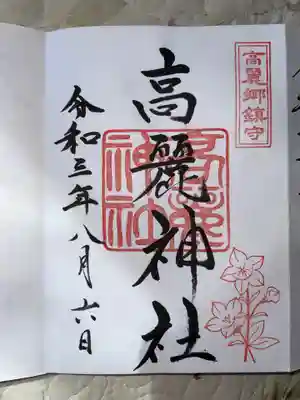 高麗郷鎮守
高麗神社
令和三年八月六日
高麗
神社